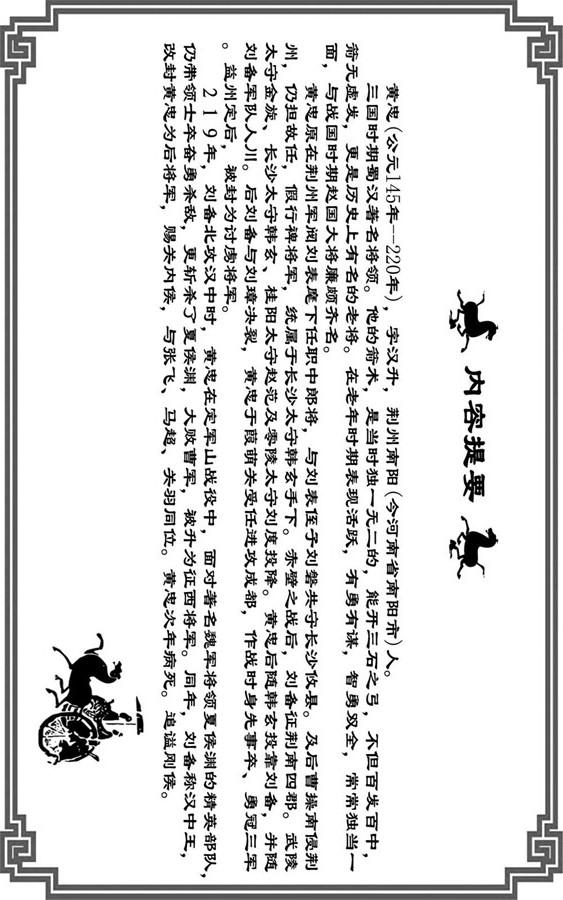 内容提要
黄忠(公元145年--220年)，字汉升，荆州南阳(今河南省南阳市)人。
三国时期蜀汉著名将领。他的箭术，是当时独一无二的，能开三石之弓，不但百发百中，
箭无虚发，更是历史上有名的老将。在老年时期表现活跃，有勇有谋，智勇双全，常常独当一
面，与战国时期赵国大将廉颇齐名。
黄忠原在荆州军阀刘表麾下任职中郎将，与刘表侄子刘磐共守长沙攸县。及后曹操南侵荆
州，仍担故任，假行裨将军，统属于长沙太守韩玄手下。赤壁之战后，刘备征荆南四郡。武陵
太守金旋、长沙太守韩玄、桂阳太守赵范及零陵太守刘度投降。黄忠后随韩玄投靠刘备，并随
刘备军队人川。后刘备与刘璋决裂，黄忠于葭萌关受任进攻成都，作战时身先事卒、勇冠三军
。益州定后，被封为讨虏将军。
219年，刘备北攻汉中时，黄忠在定军山战役中，面对著名魏军将领夏侯渊的精英部队，
仍带领士卒奋勇杀敌，更斩杀了夏侯渊，大败曹军，被升为征西将军。同年，刘备称汉中王，
改封黄忠为后将军，赐关内侯，与张飞、马超、关羽同位。黄忠次年病死。追谥刚侯。